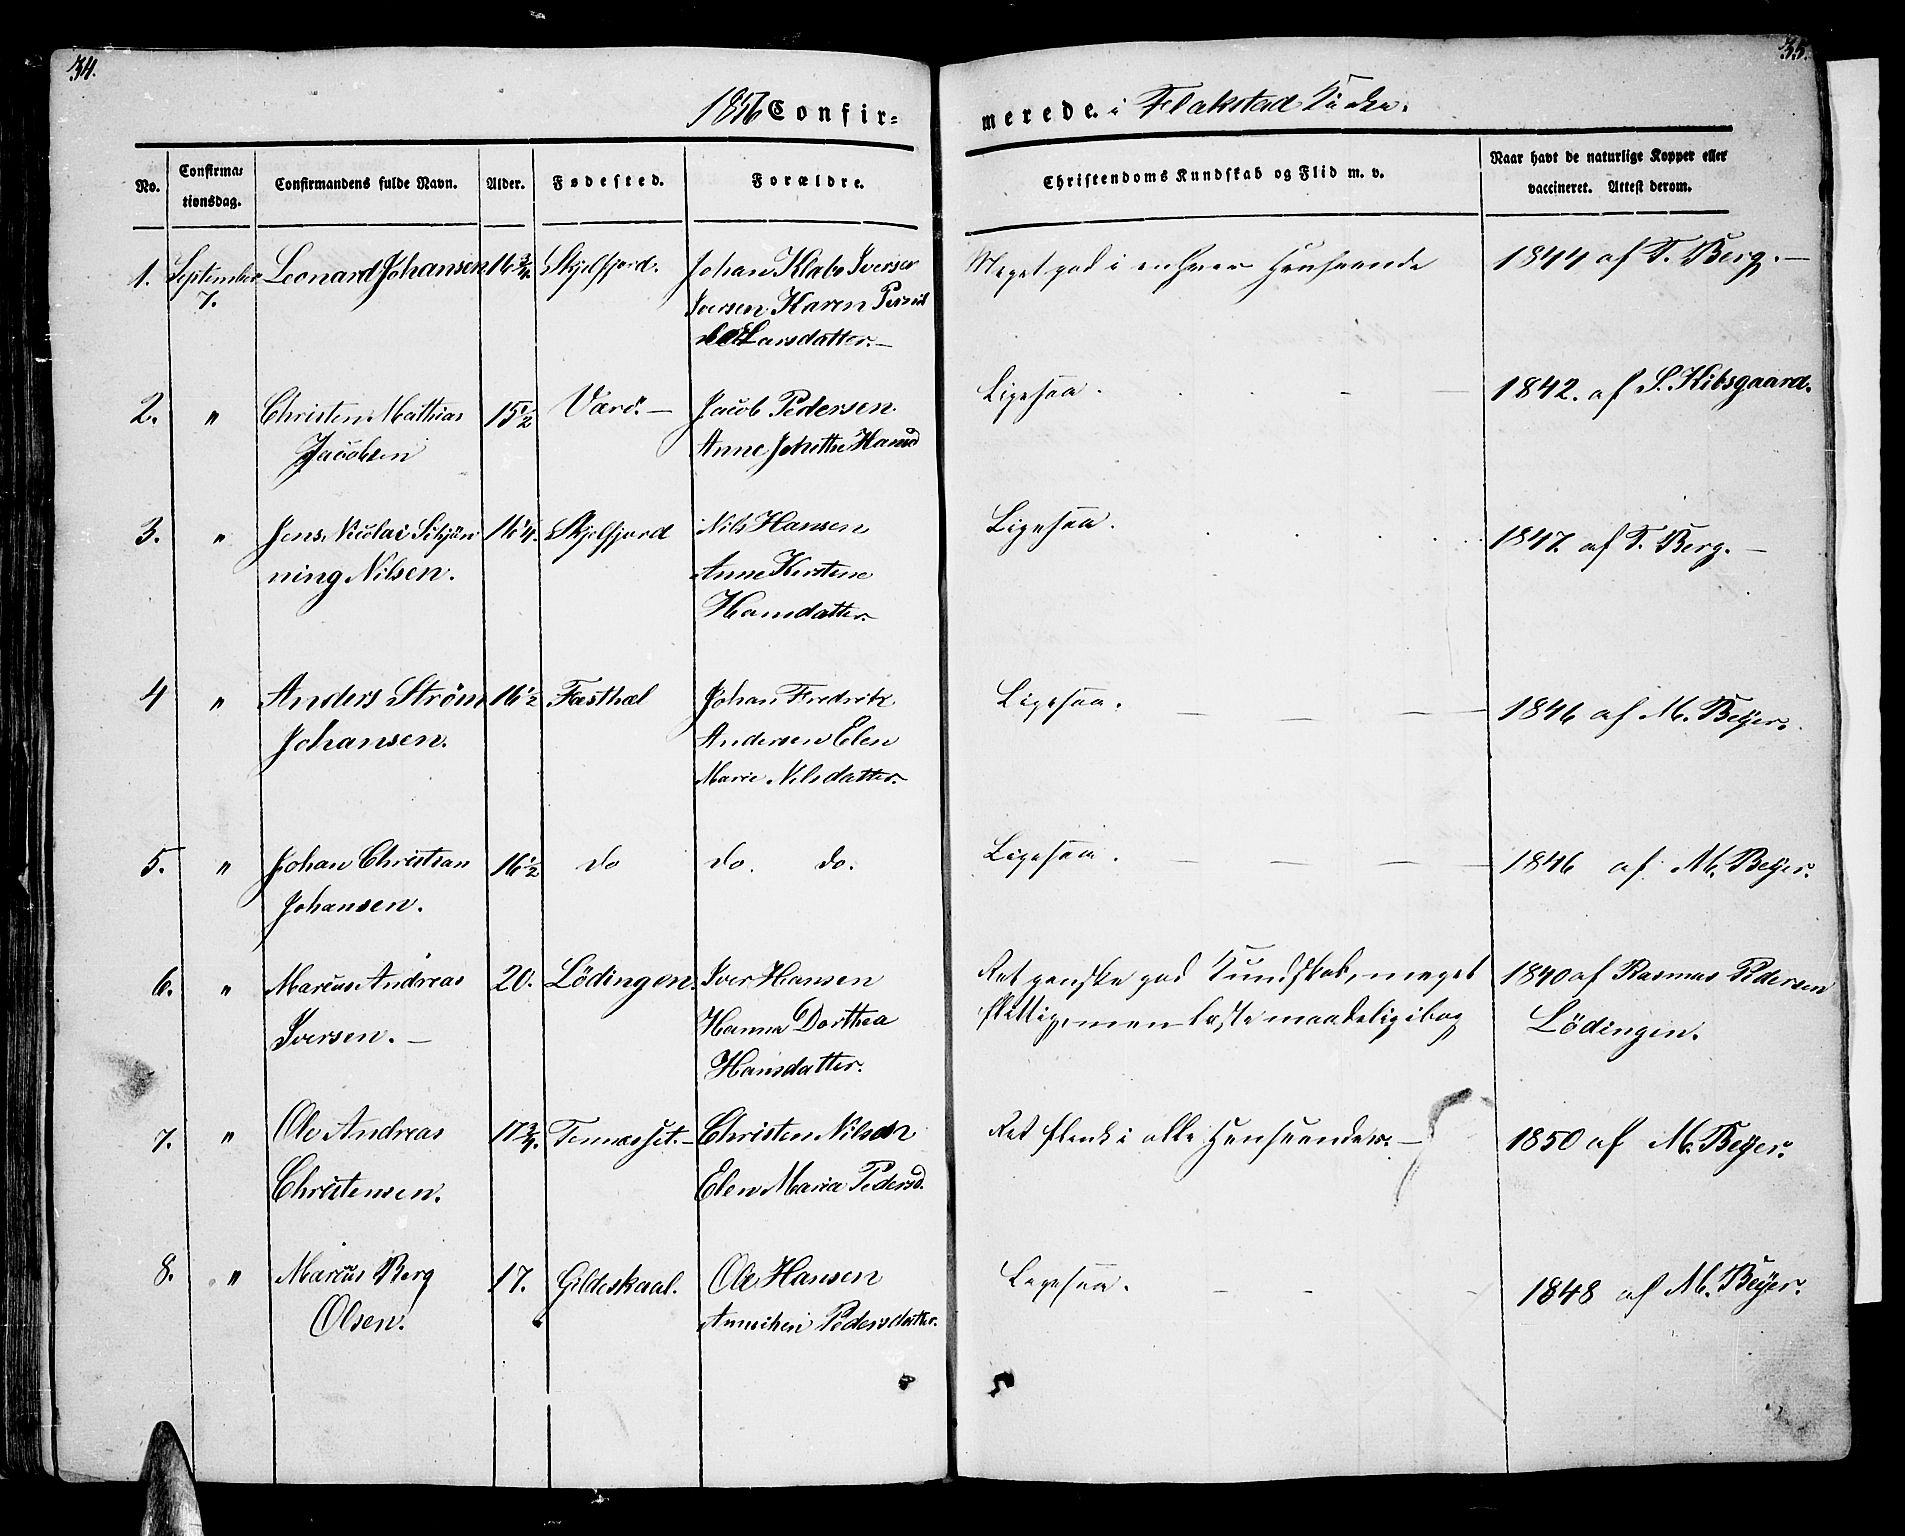 34.
35.
1856 Confir=
merede. i Flakstad Kirke.
No.
Confirma=
tionsdag.
Confirmandens fulde Navn.
Alder.
Fødested.
Forældre.
Christendoms Kundskab og Flid m. v.
Naar havt de naturlige Kopper eller
vaccineret. Attest derom.
1. September Leonard Johansen 16 3/4 Skjelfjord. Johan Klabo Iversen Meget god i enhver Henseende 1844 af T. Berg. —
7. Iversen Karen
Larsdatter. —
2. " Christen Mathias 15 1/2 Værö. — Jacob Pedersen. Ligesaa. 1842. af S. Kibsgaard.
Jacobsen Anne Jakithe Hansd
3. " Jens Nicolai Schjön 16 1/4. Skjelfjord Nils Hansen Ligesaa. 1847. af T. Berg. —
ning Nilsen. Anne Kirstine
Hansdatter.
4 " Anders Ström 16 1/2 Fæsthæl Johan Fredrik Ligesaa. 1846 af M. Beyer.
Johansen. Andersen Elen
Marie Nilsdatter.
5. " Johan Christian 16 1/2 do do. do. Ligesaa. 1846 af M. Beyer.
Johansen.
6. " Marcus Andreas 20. Lödingen. Iver Hansen Ret ganske god Kundskab, meget 1840 af Rasmus Pedersen
Iversen. — Hanna Dorthea flittig, men læste maadelig i bog Lödingen.
Hansdatter.
7. " Ole Andreas 17 3/4. Tennesset. — Christen Nilsen Ret flink i alle Henseender. — 1850 af M. Beyer.
Christensen. Elen Maria Pedersd.
8. " Marcus Berg 17. Gildeskaal. Ole Hansen Ligesaa. 1848 af M. Beyer.
Olsen. Annichen Pedersdatter.